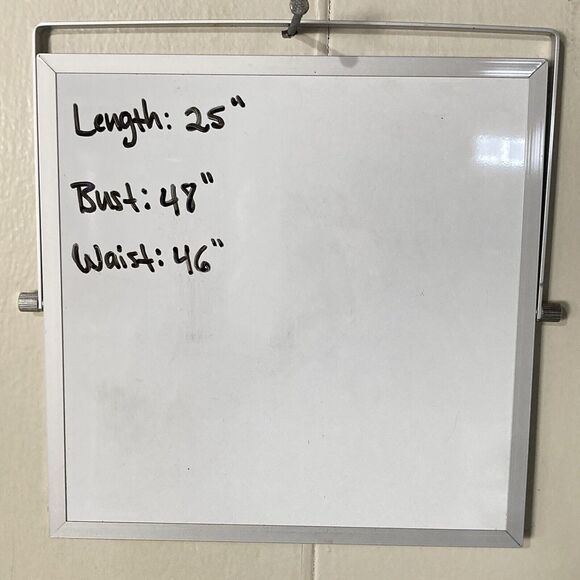 Length: 25"
Bust: 48"
Waist: 46"